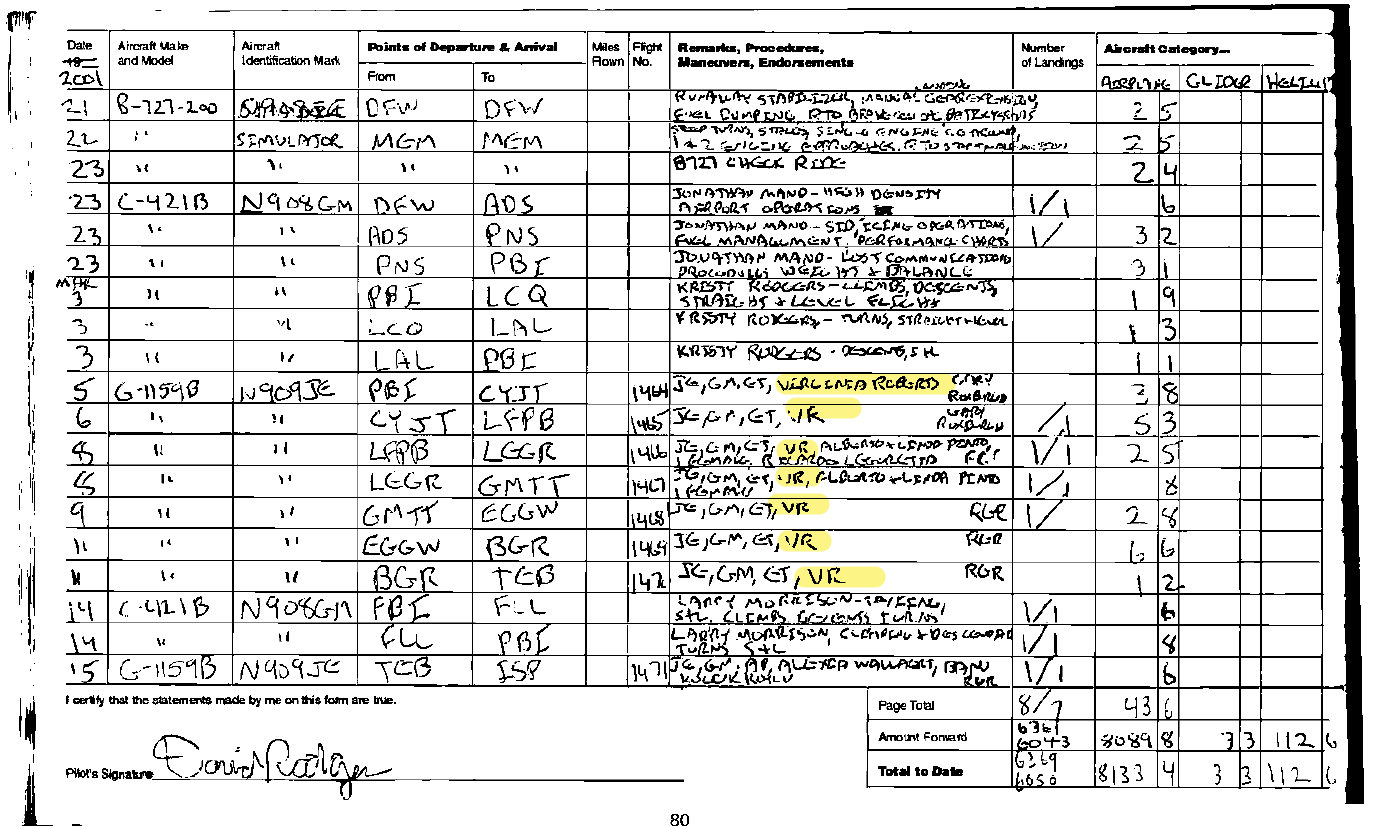 Date Aircraft Make and Model Aircraft Identification Mark Points of Departure & Arrival Miles Flown Flight No. Remarks, Procedures, Maneuvers, Endorsements Number of Landings Aircraft Category—
2001 From To AIRPLANE GLIDER
21 B-727-200 DFW DFW RUNAWAY STABILIZER, MANUAL GEAR EXTENSION, 2 5
FUEL DUMPING, RTO
22 " SIMULATOR MEM MEM STEEP TURNS, STALLS, SINGLE ENGINE GO AROUND, 2 5
1 & 2 ENGINE APPROACHES, RTO
23 " " " " B727 CHECK RIDE 2 4
23 C-421B N908GM DFW ADS JONATHAN MANO - HIGH DENSITY 1/1 6
AIRPORT OPERATIONS
23 " " ADS PNS JONATHAN MANO - SID, ICING OPERATIONS, 1/ 3 2
FUEL MANAGEMENT, PERFORMANCE CHARTS
23 " " PNS PBI JONATHAN MANO - LOST COMMUNICATIONS 3 1
PROCEDURES WEIGHT & BALANCE
MAR
3 " " PBI LCQ KRISTY RODGERS - CLIMBS, DESCENTS, 1 9
STRAIGHT & LEVEL FLIGHT
3 " " LCQ LAL KRISTY RODGERS, - TURNS, STRAIGHT & LEVEL 1 3
3 " " LAL PBI KRISTY RODGERS - DESCENTS, S+L 1 1
5 G-1159B N909JE PBI CYJT 1464 JE, GM, ET, VIRGINIA ROBERTS GARY ROXBURGH 3 8
6 " " CYJT LFPB 1465 JE, GM, ET, VR GARY ROXBURGH /1 5 3
8 " " LFPB LEGR 1466 JE, GM, ET, VR, ALBERTO & LINDA PINTO, 1/1 2 5
1 FEMALE, RICARDO LEGORRETA
8 " " LEGR GMTT 1467 JE, GM, ET, VR, ALBERTO & LINDA PINTO 1/1 8
1 FEMALE
9 " " GMTT EGGW 1468 JE, GM, ET, VR RGR 1/ 2 8
11 " " EGGW BGR 1469 JE, GM, ET, VR RGR 6 6
11 " " BGR TEB JE, GM, ET, VR RGR 1 2
14 C-421B N908GM PBI FLL LARRY MORRISON - TAXIING, 1/1 6
S+L, CLIMBS, DESCENTS, TURNS
14 " " FLL PBI LARRY MORRISON, CLIMBING & DESCENDING 1/1 8
TURNS S+L
15 G-1159B N909JE TEB ISP 1471 JE, GM, AP, 1/1 6
RGR
I certify that the statements made by me on this form are true. Page Total 8/7 43 6
Amount Forward 6361 6043 8089 8 3 3 112 6
Pilot's Signature Total to Date 6369 6050 8133 4 3 3 112 6
80